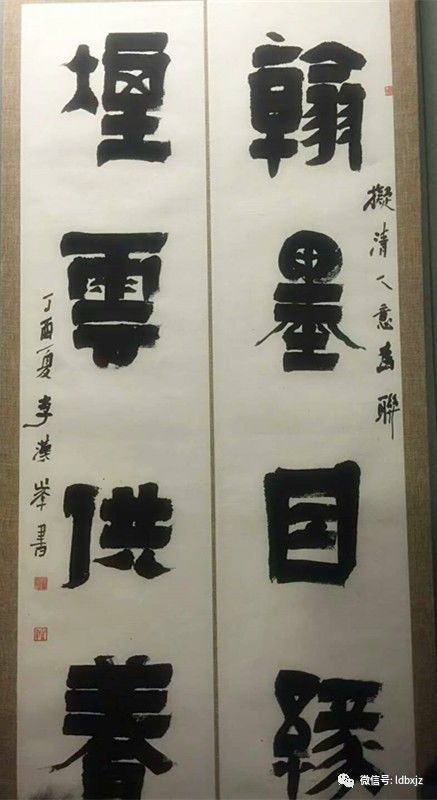 擬清人意書聯
翰墨因緣
煙雲供養
丁酉夏李漢峯書
微信号: ldbxjz